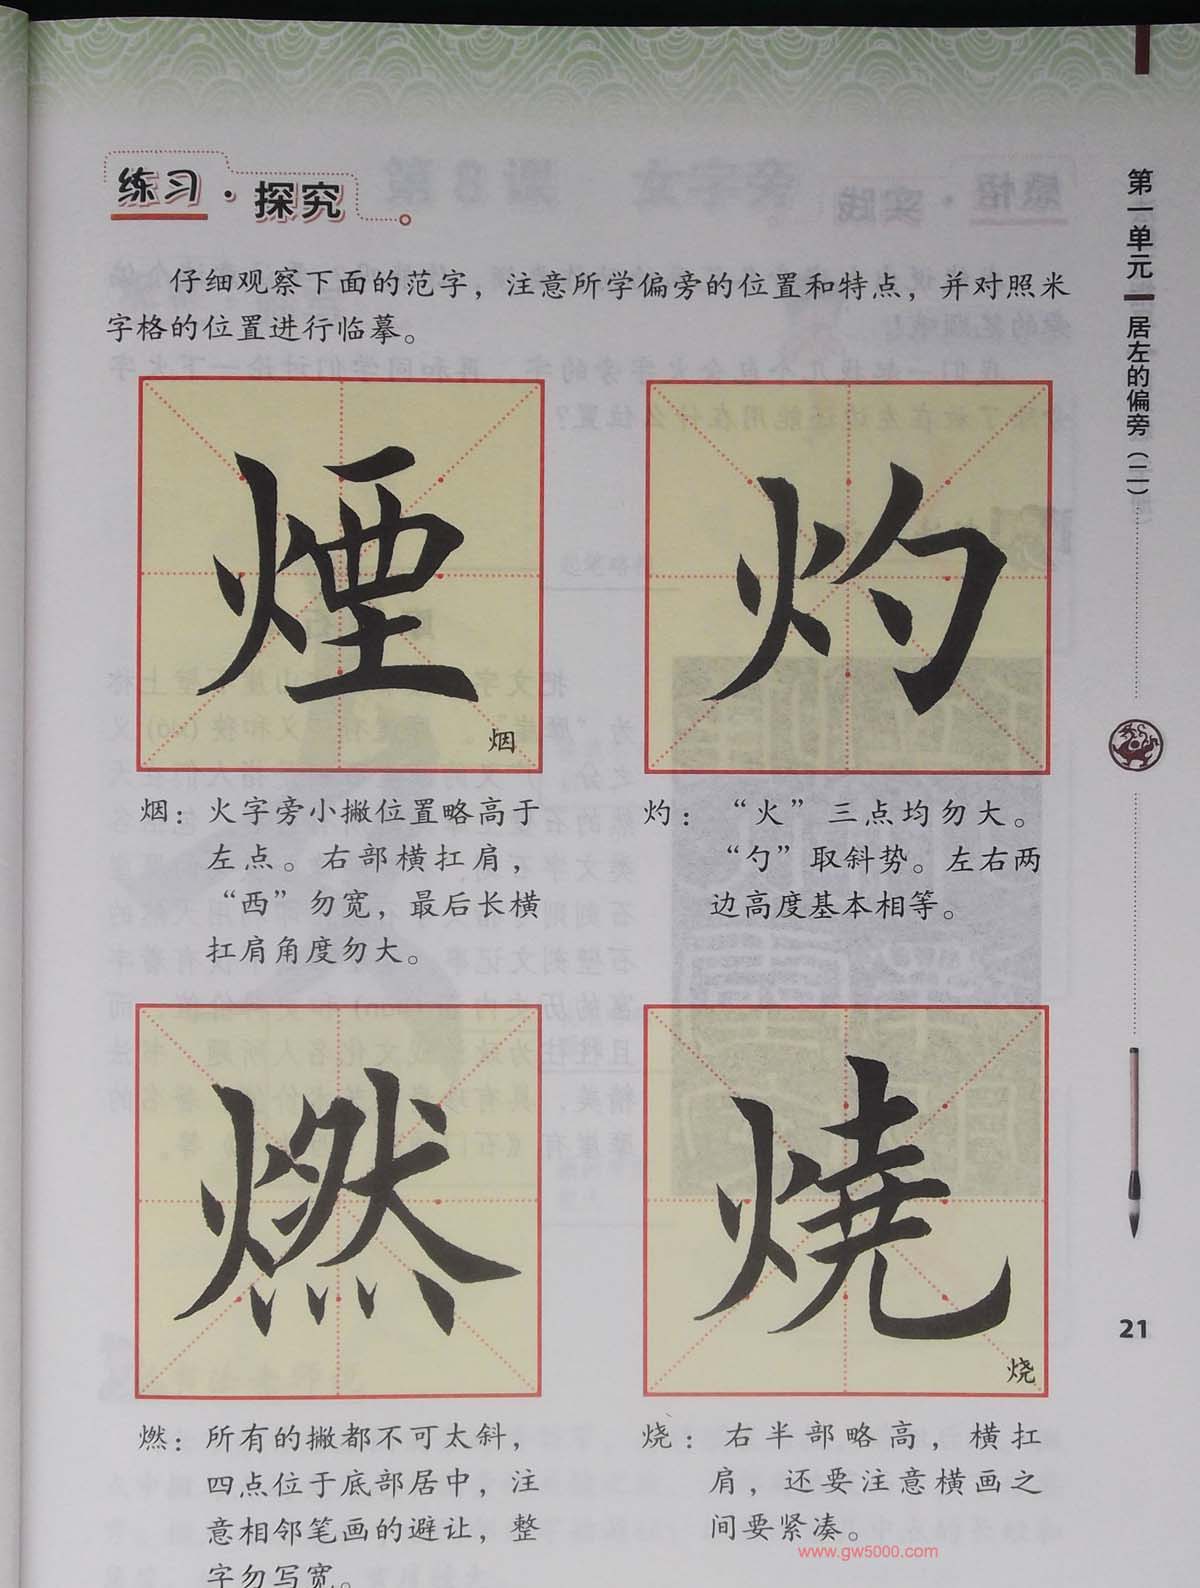 练习·探究
仔细观察下面的范字，注意所学偏旁的位置和特点，并对照米
字格的位置进行临摹。
煙
烟
灼
烟：火字旁小撇位置略高于
左点。右部横扛肩，
“西”勿宽，最后长横
扛肩角度勿大。
灼：“火”三点均勿大。
“勺”取斜势。左右两
边高度基本相等。
燃
燒
烧
燃：所有的撇都不可太斜，
四点位于底部居中，注
意相邻笔画的避让，整
字勿写宽。
烧：右半部略高，横扛
肩，还要注意横画之
间要紧凑。
www.gw5000.com
第一单元 居左的偏旁（二）
21